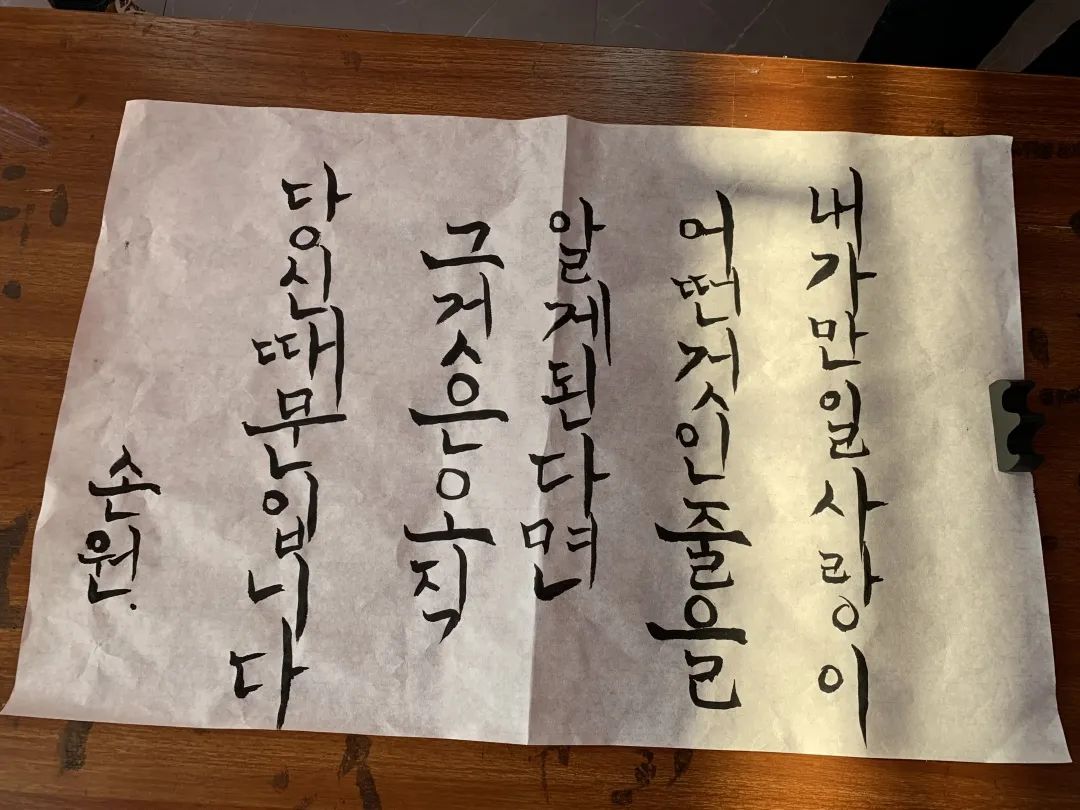 내가만일사랑이
어떤것인줄을
알게된다면
그것은오직
당신때문입니다
손원.